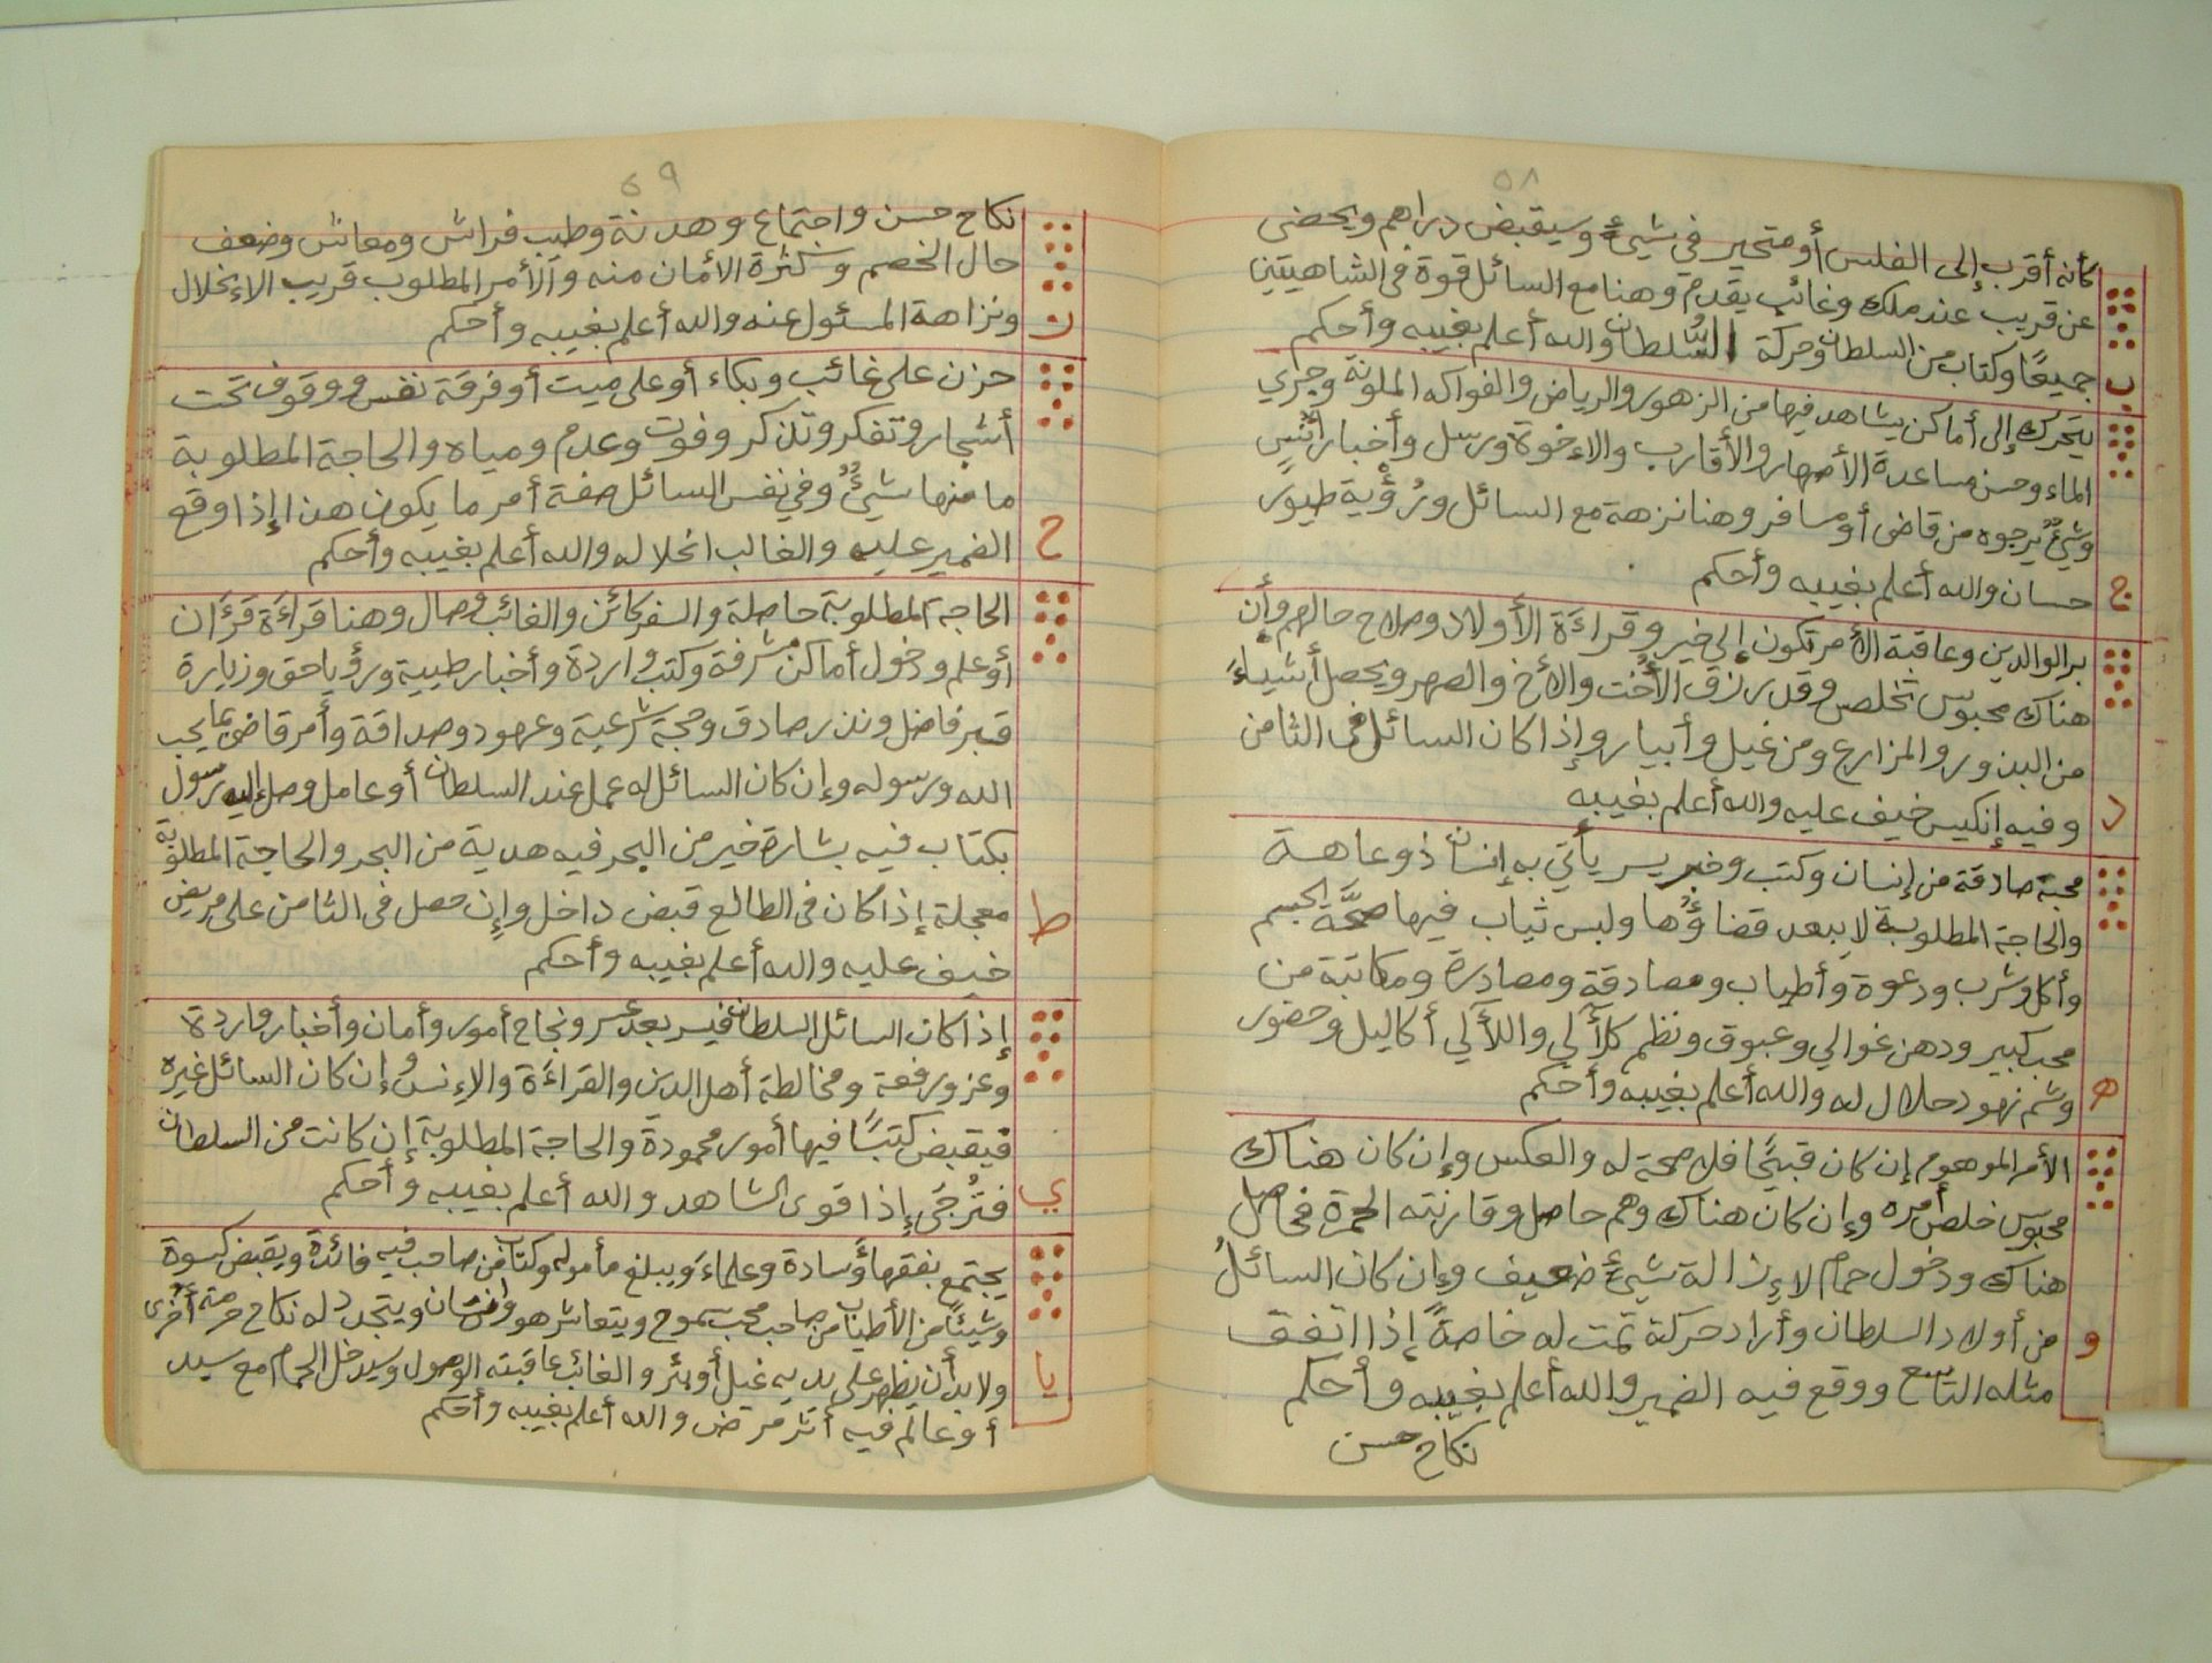 ٥٨
كأنه أقرب إلى الفلس أو متحير في شيءٍ وسيقبض دراهم ويحضى
عن قريب عند ملك وغائب يقدم وهنا مع السائل قوة في الشاهيتين
ب جميعًا وكتاب من السلطان وحركة السُّلطان والله أعلم بغيبه وأحكم
يتحرك إلى أماكن يشاهد فيها من الزهور والرياض والفواكه الملونة وجري
الماء وحسن مساعدة الأصهار والأقارب والإخوة ورسل وأخبار أُنسٍ
وشيءٌ يرجوه من قاضٍ أو مسافر وهنا نزهة مع السائل ورُؤية طيور
ج حسان والله أعلم بغيبه وأحكم
بر الوالدين وعاقبة الأمر تكون إلى خير وقراءَة الأولاد وصلاح حالهم وأن
هناك محبوس تخلص وقد رزق الأخت والأخ والصهر ويحصل أشياءً
من البذور والمزارع ومن غيل وأبيار وإذا كان السائل في الثامن
د وفيه إنكيس خيف عليه والله أعلم بغيبه
محبة صادقة من إنسان وكتب وخبر يسر يأتي به إنسان ذو عاهة
والحاجة المطلوبة لا يبعد قضاؤها ولبس ثياب فيها صحَّة الجسم
وأكل وشرب ودعوة وأطياب ومصادقة ومصادرة ومكاتبة من
محب كبير ودهن غوالي وعبوق ونظم كلآلي واللآلي أكاليل وحضور
ه وشم نهود حلال له والله أعلم بغيبه وأحكم
الأمر الموهوم إن كان قبيحًا فلا صحة له والعكس وإن كان هناك
محبوس خلص أمره وإن كان هناك وهم حاصل وقارنته الحمرة فحاصل
هناك ودخول حمام لإزالة شيءٍ ضعيف وإن كان السائلُ
و من أولاد السلطان وأراد حركة تمت له خاصةً إذا اتفق
مثله التاسع ووقع فيه الضمير والله أعلم بغيبه وأحكم
نكاح حسن
٥٩
نكاح حسن واجتماع وهدنة وطيب فراش ومعاش وضعف
حال الخصم وكثرة الأمان منه والأمر المطلوب قريب الإنحلال
ز ونزاهة المسئول عنه والله أعلم بغيبه وأحكم
حزن على غائب وبكاء أو على ميت أو فرقة نفس ووقوف تحت
أشجار وتفكر وتذكر وفوت وعدم ومياه والحاجة المطلوبة
ما منها شيءٌ وفي نفس السائل صفة أمر ما يكون هذا إذا وقع
ح الضمير عليه والغالب انحلاله والله أعلم بغيبه وأحكم
الحاجة المطلوبة حاصلة والسفر كائن والغائب وصال وهنا قراءَة قرءَان
أو علم ودخول أماكن مشرفة وكتب واردة وأخبار طيبة ورؤيا حق وزيارة
قبر فاضل ونذر صادق وحجة شرعية وعهود وصداقة وأمر قاض بما يحب
الله ورسوله وإن كان السائل له عمل عند السلطان أو عامل وصل إليه رسول
بكتاب فيه بشارة خير من البحر فيه هدية من البحر والحاجة المطلوبة
ط معجلة إذا كان في الطالع قبض داخل وإن حصل في الثامن على مريض
خيف عليه والله أعلم بغيبه وأحكم
إذا كان السائل السلطان فيسر بعد عسر ونجاح أمور وأمان وأخبار واردة
وعز ورفعة ومخالطة أهل الدين والقراءَة والإنس وإن كان السائل غيره
فيقبض كتبًا فيها أمور محمودة والحاجة المطلوبة إن كانت من السلطان
ي فتُرجَى إذا قوى الشاهد والله أعلم بغيبه وأحكم
يجتمع بفقهاءَ وسادة وعلماءَ ويبلغ مأموله وكتاب من صاحب فيه فائدة ويقبض كسوة
وشيئًا من الأطياب من صاحب محب سموح ويتعاشر هو وإنسان ويتجدد له نكاح حرمة أخرى
يا ولا بد أن يظهر على يديه غيل أو بئر والغائب عاقبته الوصول وسيدخل الحمام مع سيد
أو عالم فيه أثر مرض والله أعلم بغيبه وأحكم